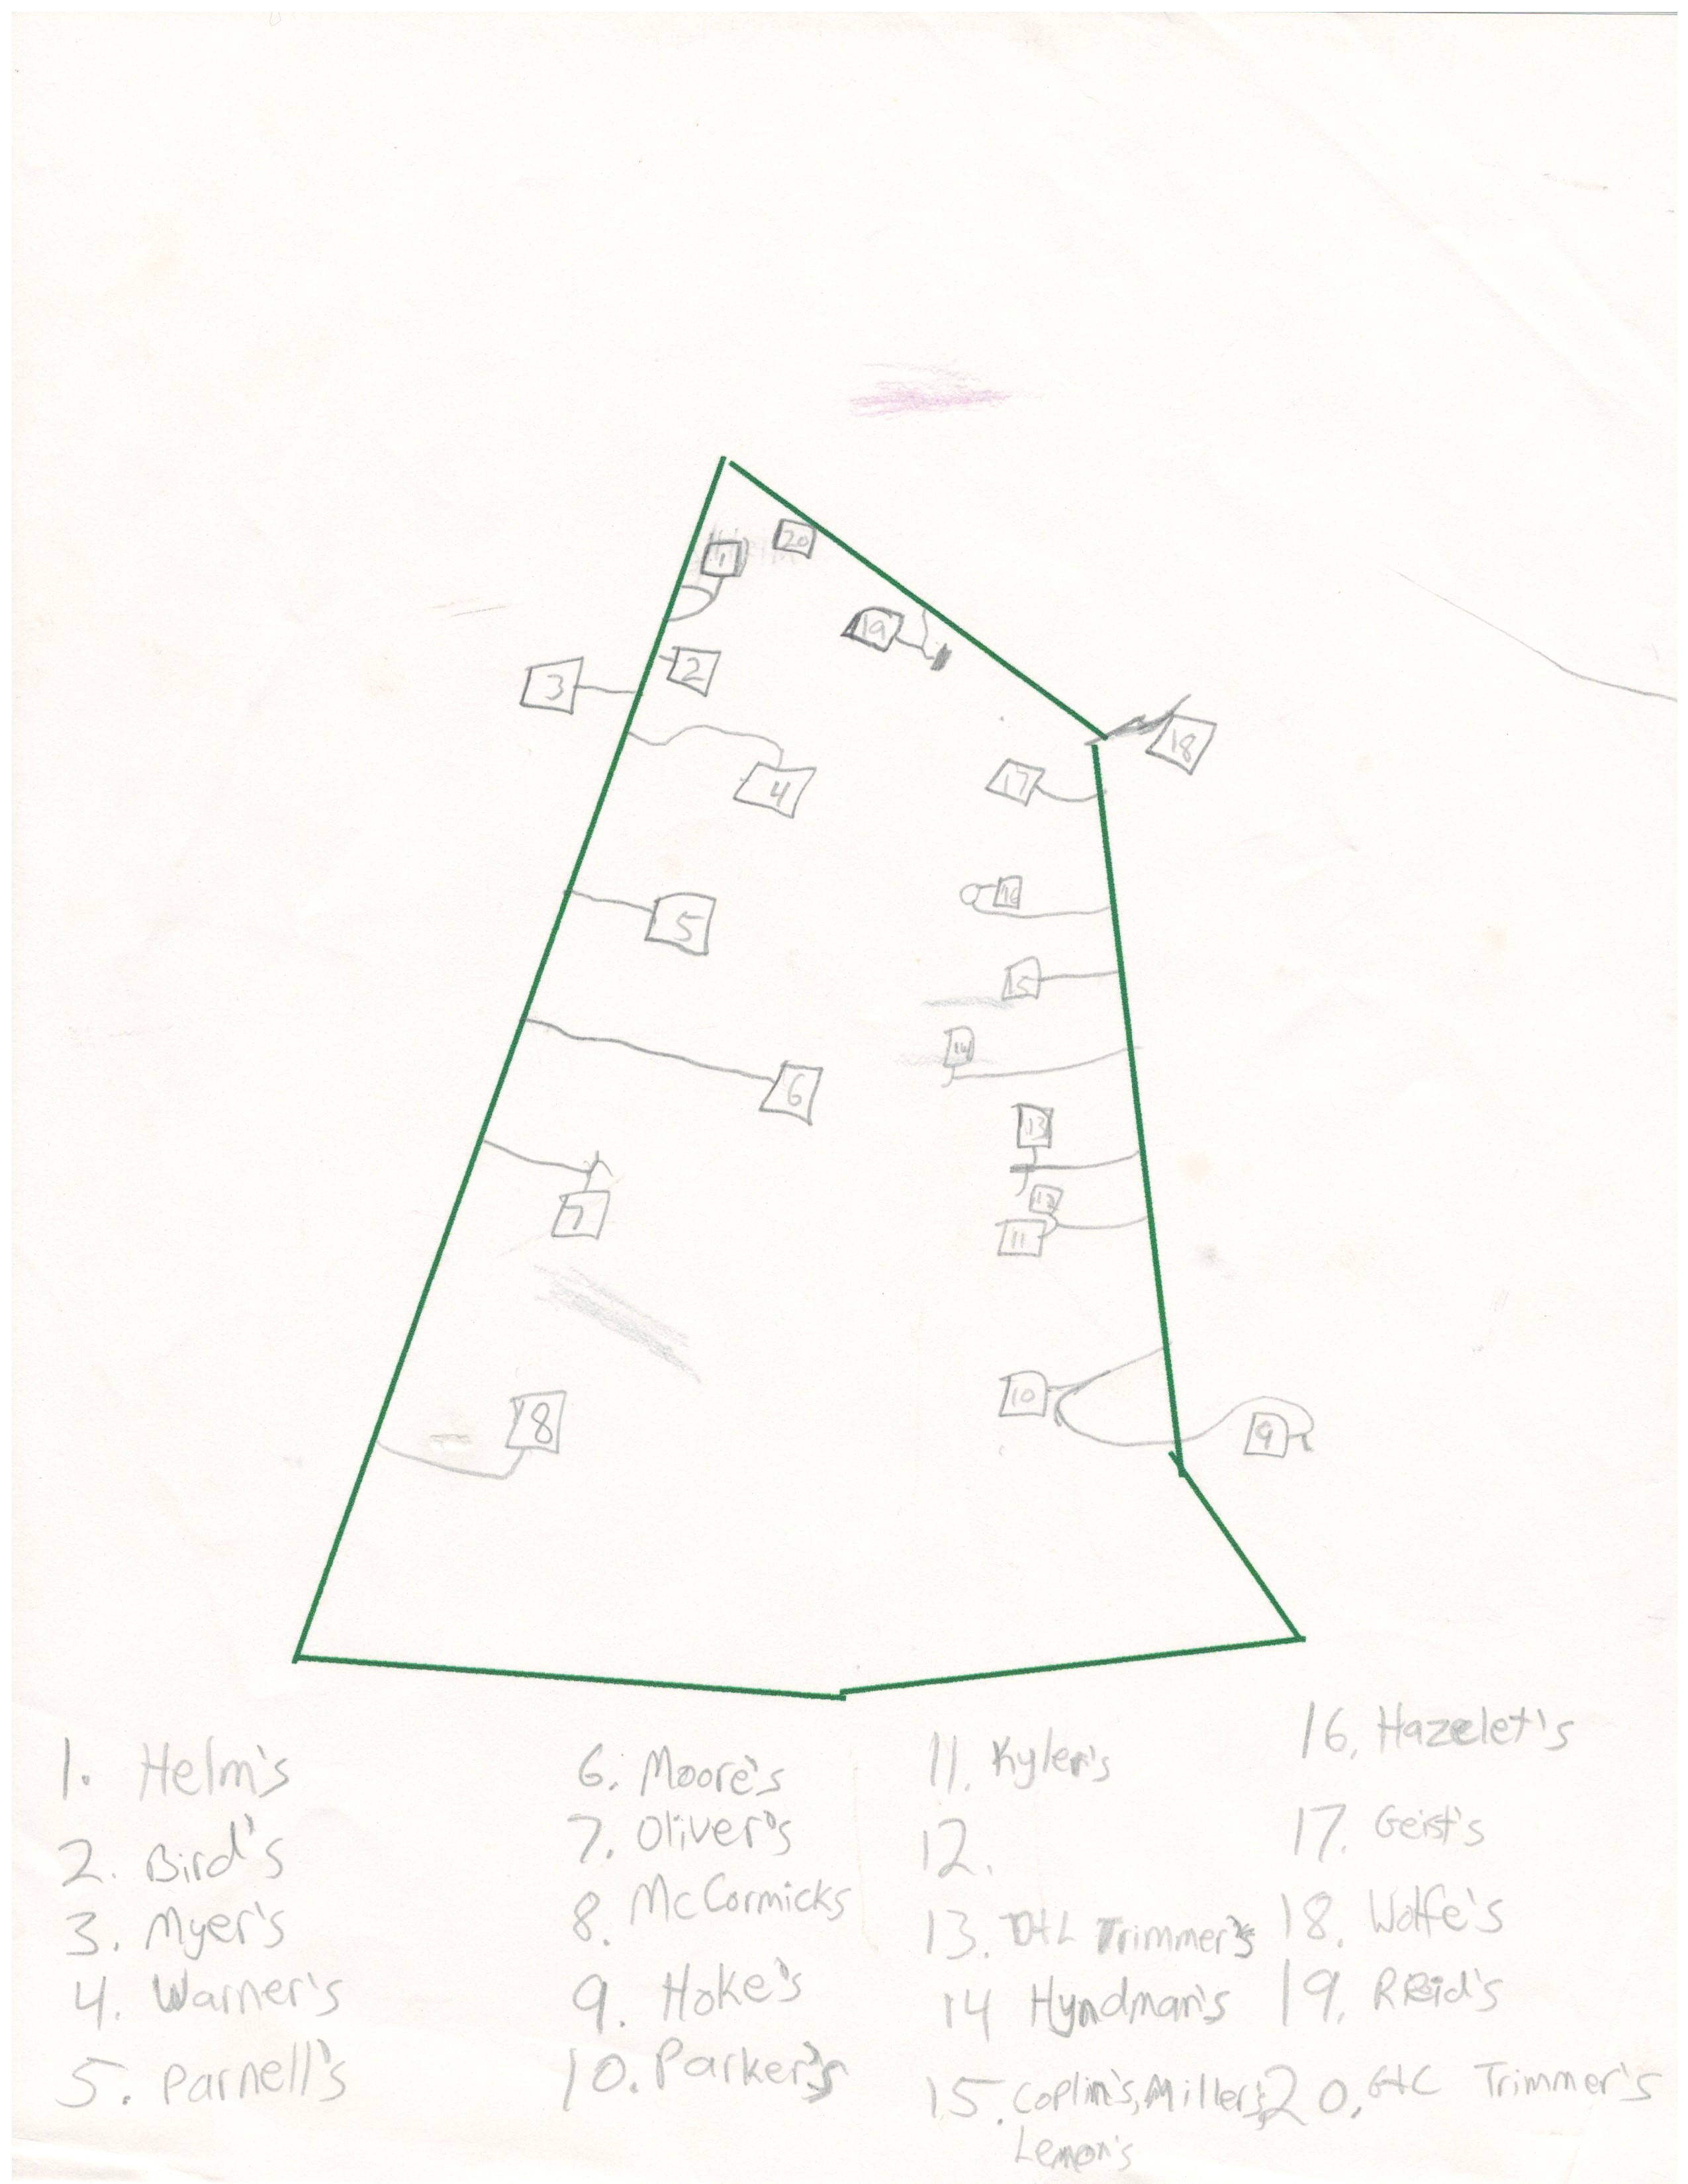 1
20
19
2
3
18
17
4
16
5
15
14
6
13
12
7
11
10
8
9
1. Helm's
2. Bird's
3. Myer's
4. Warner's
5. Parnell's
6. Moore's
7. Oliver's
8. McCormicks
9. Hoke's
10. Parker's
11. Kyler's
12.
13. D+L Trimmer's
14 Hyndman's
15. Coplin's, Miller's,
Lemon's
16. Hazelet's
17. Geist's
18. Wolfe's
19. Reid's
20. G+C Trimmer's